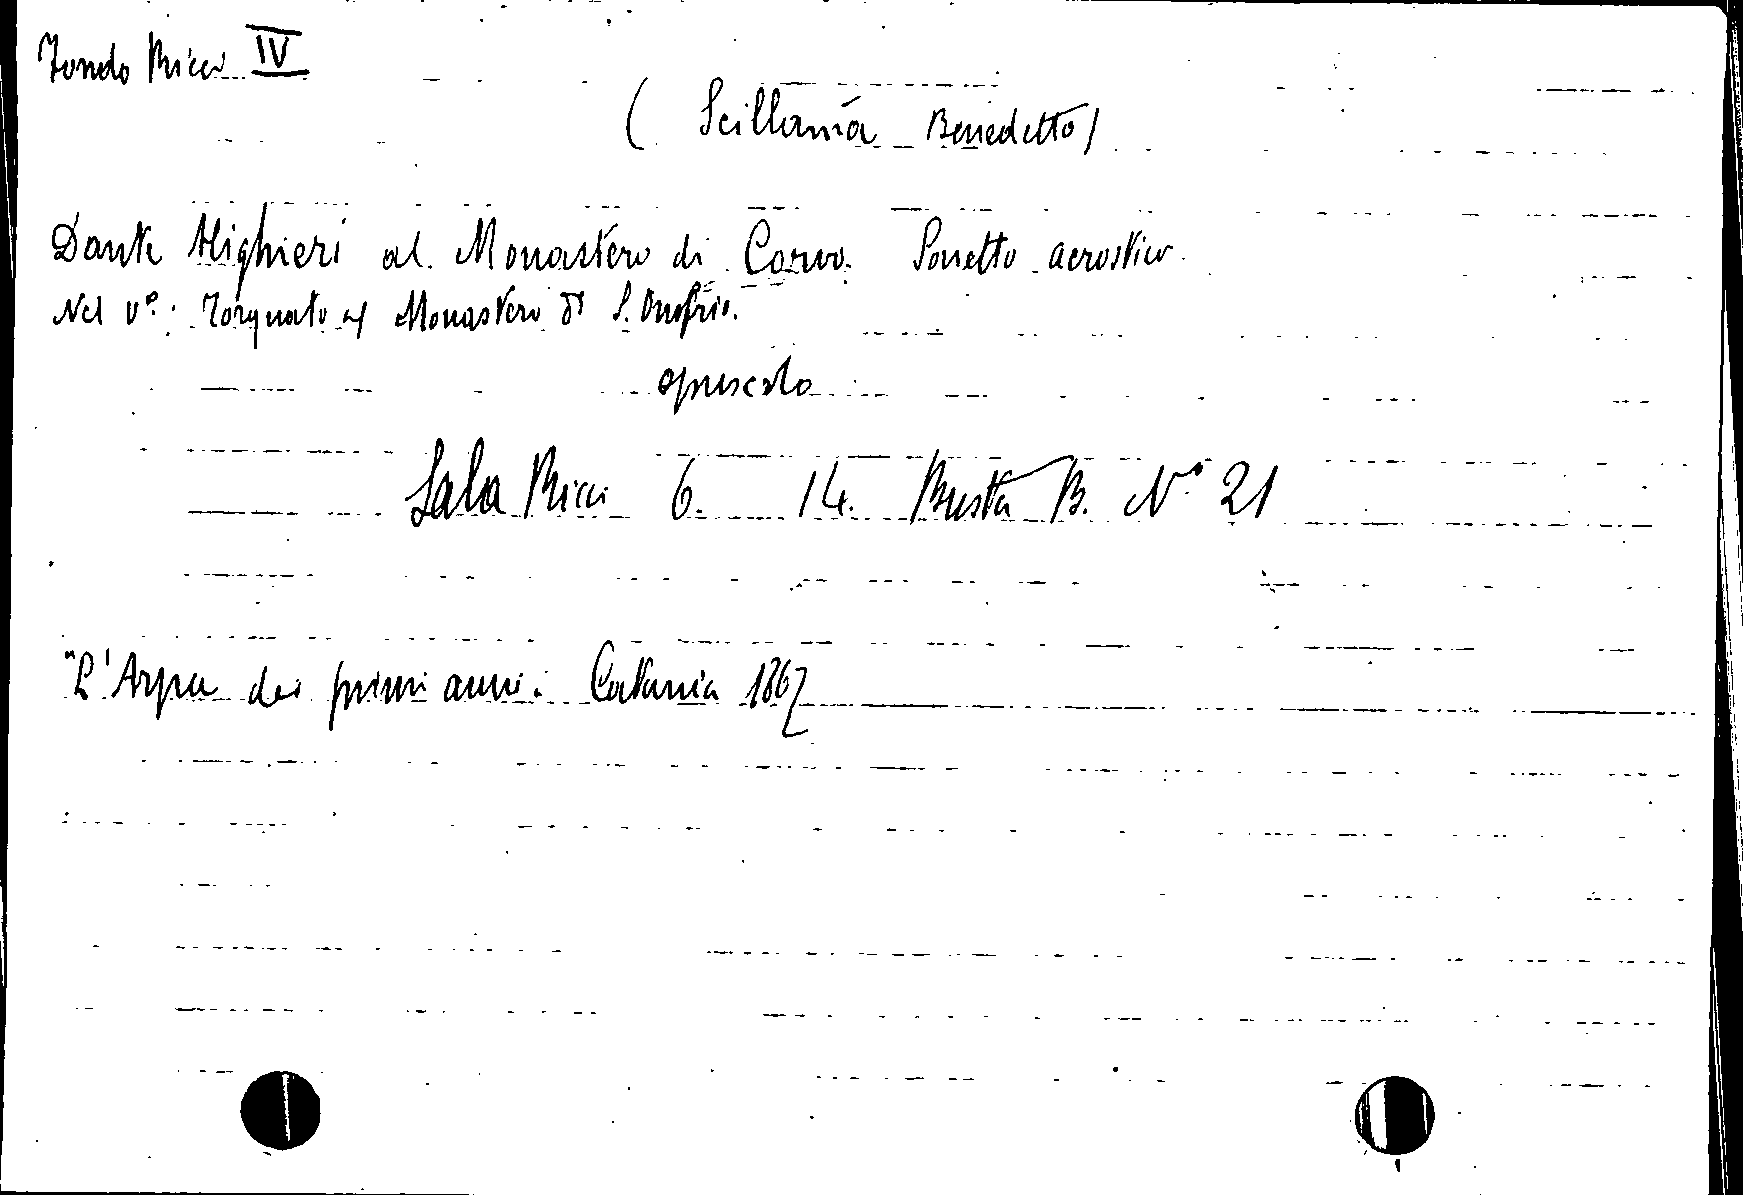 Fondo Ricci IV
( Scillamà Benedetto )
Dante Alighieri al Monastero di Corvo. Sonetto acrostico.
Nel v°: Torquato al Monastero di S. Onofrio.
opuscolo
Sala Ricci 6. 14. Busta B. N° 21
"L'Arpa dei primi anni. Catania 1867